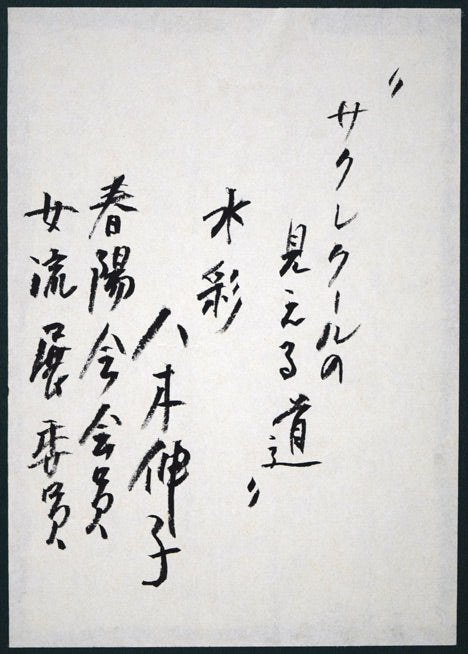 〃サクレクールの
見える道〃
水彩
八木伸子
春陽会会員
女流展委員